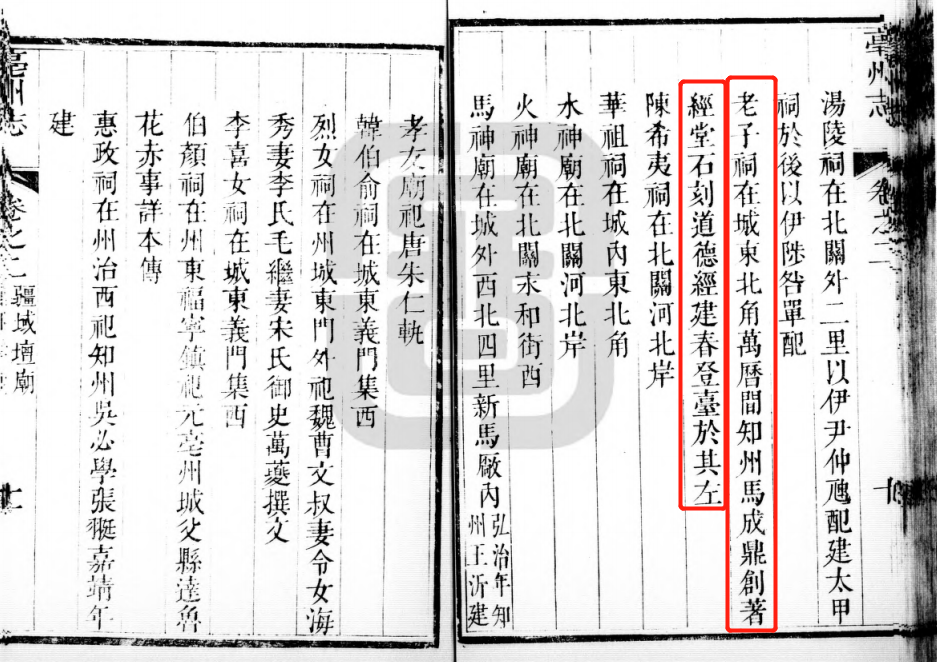 亳州志
卷之二
湯陵祠在北關外二里以伊尹仲虺配建太甲
祠於後以伊陟咎單配
老子祠在城東北角萬曆間知州馬成鼎創著
經堂石刻道德經建春登臺於其左
陳希夷祠在北關河北岸
華祖祠在城內東北角
水神廟在北關河北岸
火神廟在北關永和街西
馬神廟在城外西北四里新馬廠內弘治年知
州王沂建
孝友廟祀唐朱仁軌
韓伯俞祠在城東義門集西
烈女祠在州城東門外祀魏曹文叔妻令女海
秀妻李氏毛繼妻宋氏御史萬夔撰文
李喜女祠在城東義門集西
伯顏祠在州東福寧鎮祀元亳州城父縣達魯
花赤事詳本傳
惠政祠在州治西祀知州吳必學張珽嘉靖年
建
亳州志
卷之二
疆域壇廟
十一